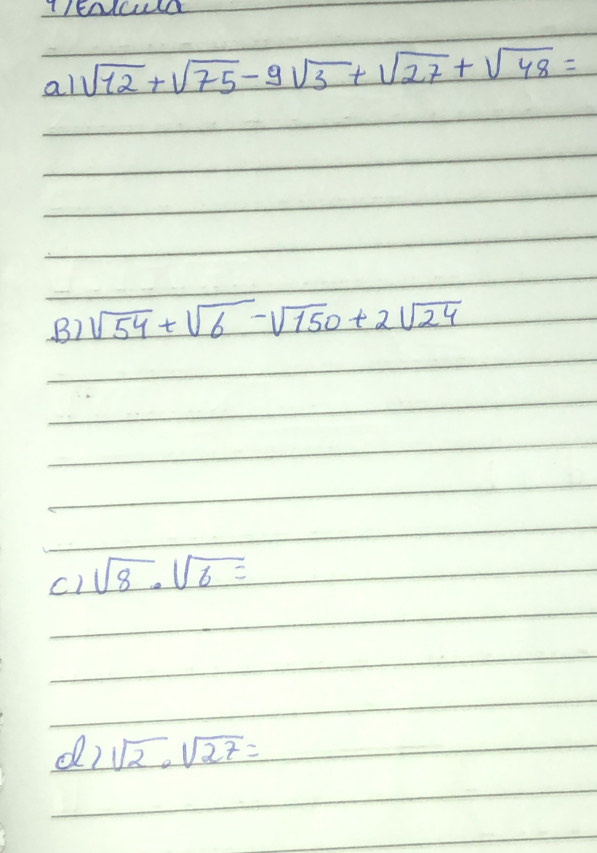 1) Calcula
a) √12 + √75 - 9√3 + √27 + √48 =
B) √54 + √6 - √150 + 2√24
c) √8 . √6 =
d) √2 . √27 =